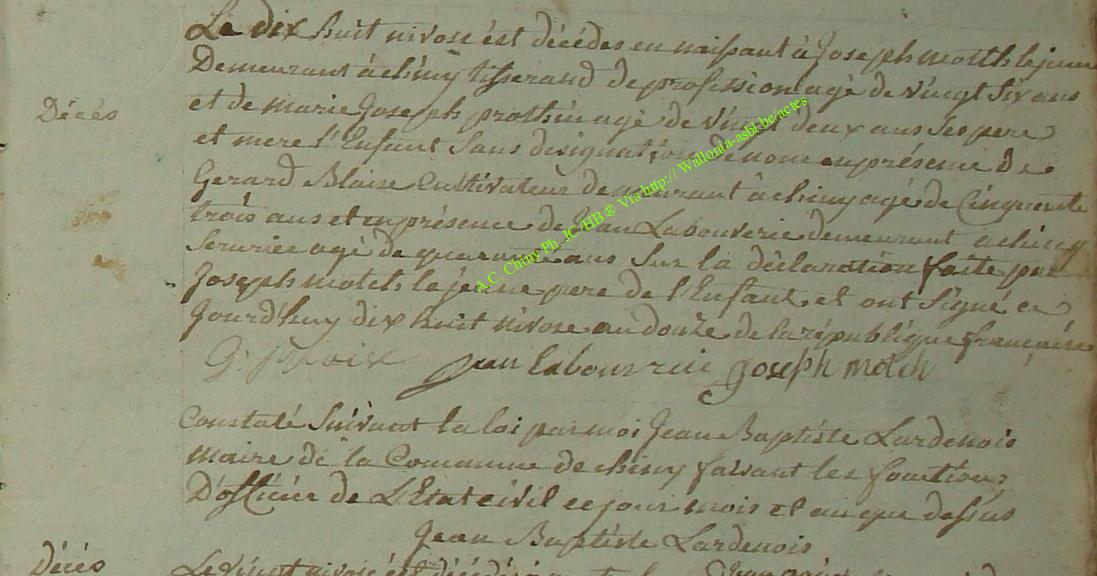 Le dix huit nivose ést décédes en naissant à Joseph motth le jeune
Décés
Demeurant à chiny tisserand de profession agé de vingt six ans
et de marie Joseph prothin agé de vingt deux ans ses pere
et mere l'Enfant sans designation de nom en présence de
Gerard Blaise Cultivateur demeurant à chiny agé de Cinquante
trois ans et en présence de Jean Labouverie demeurant à chiny
Serurier agé de quarante ans sur la déclaration faite par
Joseph motch le jeune pere de l'Enfant et ont signé ce
Jourd'huy dix huit nivose an douze de la république française
Jean labouverie Joseph motch
Constaté suivant la loi par moi Jean Baptiste Lardenois
maire de la Commune de chiny faisant les fonctions
D'officier de L'Etat civil ce jour mois et an que dessus
Jean Baptiste Lardenois
Décés
Le vingt nivose ést décédé
A.C. Chiny Ph. JC/HB ® Via http:// Wallonia-asbl.be/actes